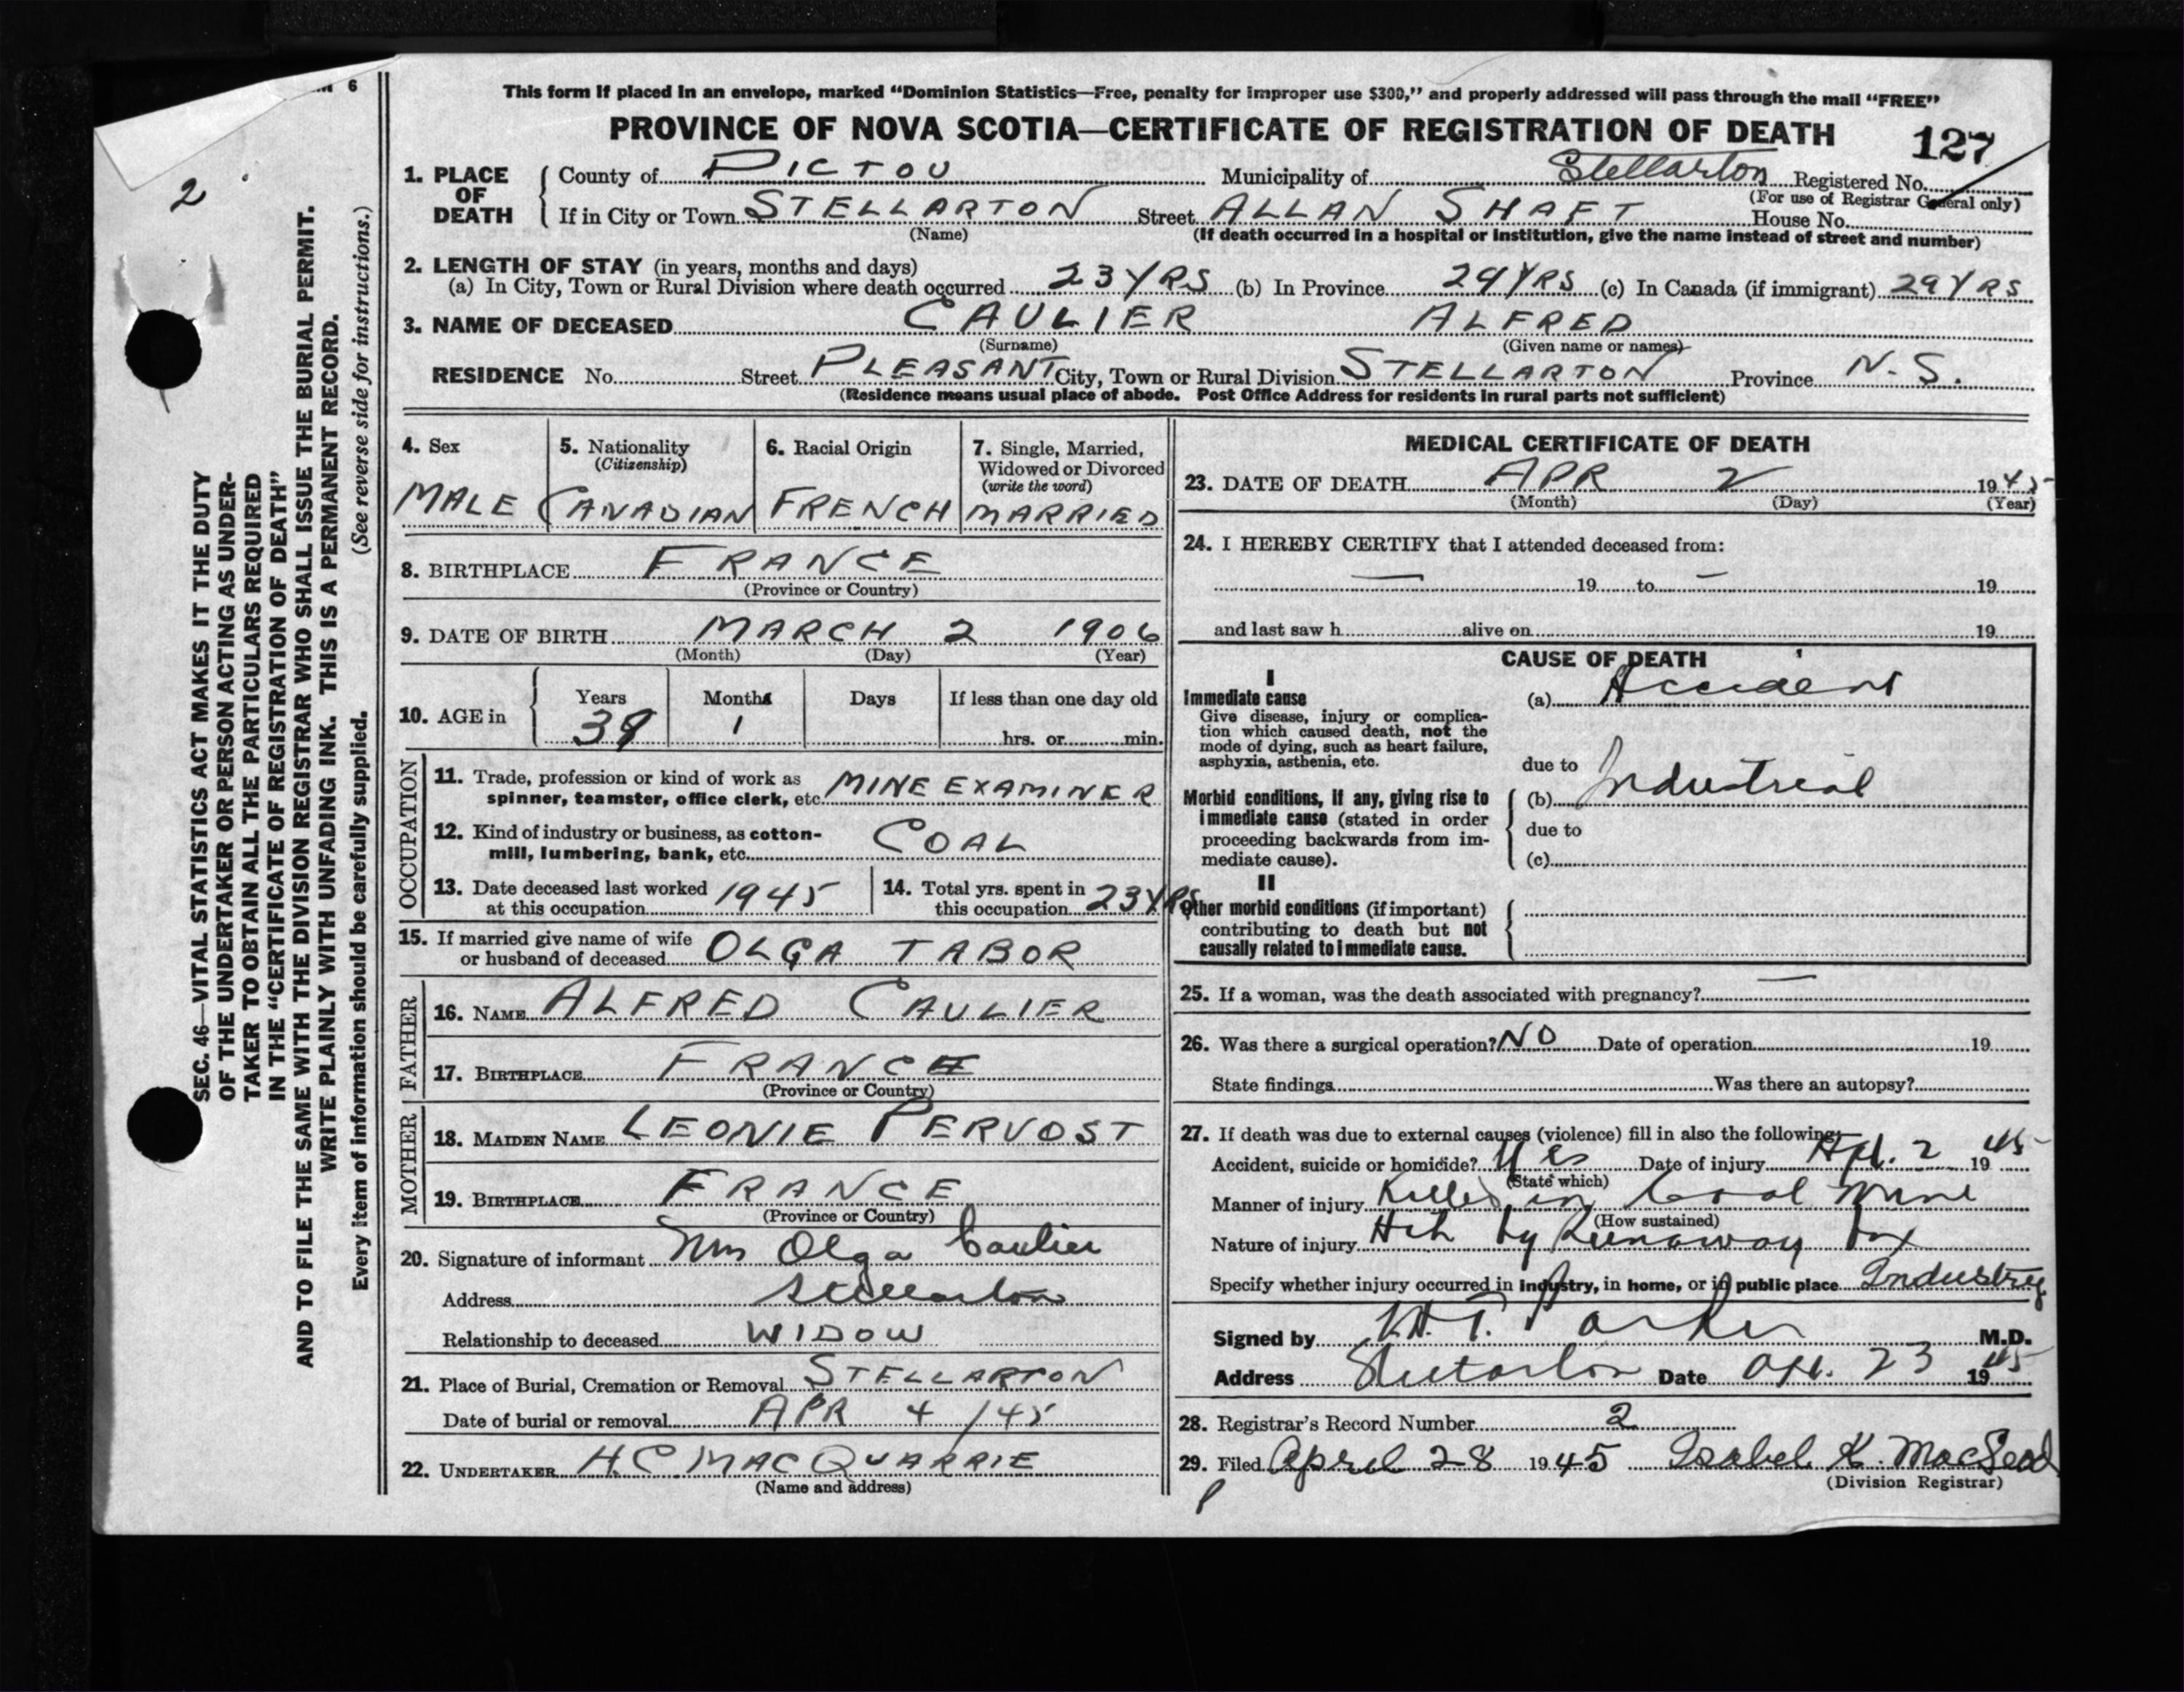 6
This form if placed in an envelope, marked “Dominion Statistics—Free, penalty for improper use $300,” and properly addressed will pass through the mail “FREE”
PROVINCE OF NOVA SCOTIA—CERTIFICATE OF REGISTRATION OF DEATH 127
2
1. PLACE OF DEATH
County of PICTOU Municipality of Stellarton Registered No.
(For use of Registrar General only)
If in City or Town STELLARTON Street ALLAN SHAFT House No.
(Name) (If death occurred in a hospital or institution, give the name instead of street and number)
2. LENGTH OF STAY (in years, months and days)
(a) In City, Town or Rural Division where death occurred 23 YRS (b) In Province 29 YRS (c) In Canada (if immigrant) 29 YRS
3. NAME OF DECEASED CAULIER ALFRED
(Surname) (Given name or names)
RESIDENCE No. Street PLEASANT City, Town or Rural Division STELLARTON Province N.S.
(Residence means usual place of abode. Post Office Address for residents in rural parts not sufficient)
4. Sex
MALE
5. Nationality
(Citizenship)
CANADIAN
6. Racial Origin
FRENCH
7. Single, Married,
Widowed or Divorced
(write the word)
MARRIED
8. BIRTHPLACE FRANCE
(Province or Country)
9. DATE OF BIRTH MARCH 2 1906
(Month) (Day) (Year)
10. AGE in
Years Months Days If less than one day old
39 1 hrs. or min.
OCCUPATION
11. Trade, profession or kind of work as
spinner, teamster, office clerk, etc. MINE EXAMINER
12. Kind of industry or business, as cotton-
mill, lumbering, bank, etc. COAL
13. Date deceased last worked
at this occupation 1945
14. Total yrs. spent in
this occupation 23 YRS
15. If married give name of wife
or husband of deceased OLGA TABOR
FATHER
16. NAME ALFRED CAULIER
17. BIRTHPLACE FRANCE
(Province or Country)
MOTHER
18. MAIDEN NAME LEONIE PERVOST
19. BIRTHPLACE FRANCE
(Province or Country)
20. Signature of informant Mrs Olga Caulier
Address Stellarton
Relationship to deceased WIDOW
21. Place of Burial, Cremation or Removal STELLARTON
Date of burial or removal APR 4 /45
22. UNDERTAKER H.C MACQUARRIE
(Name and address)
MEDICAL CERTIFICATE OF DEATH
23. DATE OF DEATH APR 2 1945
(Month) (Day) (Year)
24. I HEREBY CERTIFY that I attended deceased from:
— 19 to — 19
and last saw h alive on 19
CAUSE OF DEATH
I
Immediate cause
Give disease, injury or complica-
tion which caused death, not the
mode of dying, such as heart failure,
asphyxia, asthenia, etc.
(a) Accident
due to
Morbid conditions, if any, giving rise to
immediate cause (stated in order
proceeding backwards from im-
mediate cause).
(b) Industrial
due to
(c)
II
Other morbid conditions (if important)
contributing to death but not
causally related to immediate cause.
25. If a woman, was the death associated with pregnancy? —
26. Was there a surgical operation? NO Date of operation 19
State findings Was there an autopsy?
27. If death was due to external causes (violence) fill in also the following:
Accident, suicide or homicide? Yes Date of injury Apl. 2 1945
(State which)
Manner of injury Killed in Coal Mine
(How sustained)
Nature of injury Hit by Runaway box
Specify whether injury occurred in industry, in home, or in public place Industry
Signed by Parker M.D.
Address Stellarton Date Apl. 23 1945
28. Registrar's Record Number 2
29. Filed April 28 1945 Isabel K. MacLeod
(Division Registrar)
SEC. 46—VITAL STATISTICS ACT MAKES IT THE DUTY
OF THE UNDERTAKER OR PERSON ACTING AS UNDER-
TAKER TO OBTAIN ALL THE PARTICULARS REQUIRED
IN THE “CERTIFICATE OF REGISTRATION OF DEATH”
AND TO FILE THE SAME WITH THE DIVISION REGISTRAR WHO SHALL ISSUE THE BURIAL PERMIT.
WRITE PLAINLY WITH UNFADING INK. THIS IS A PERMANENT RECORD.
Every item of information should be carefully supplied. (See reverse side for instructions.)